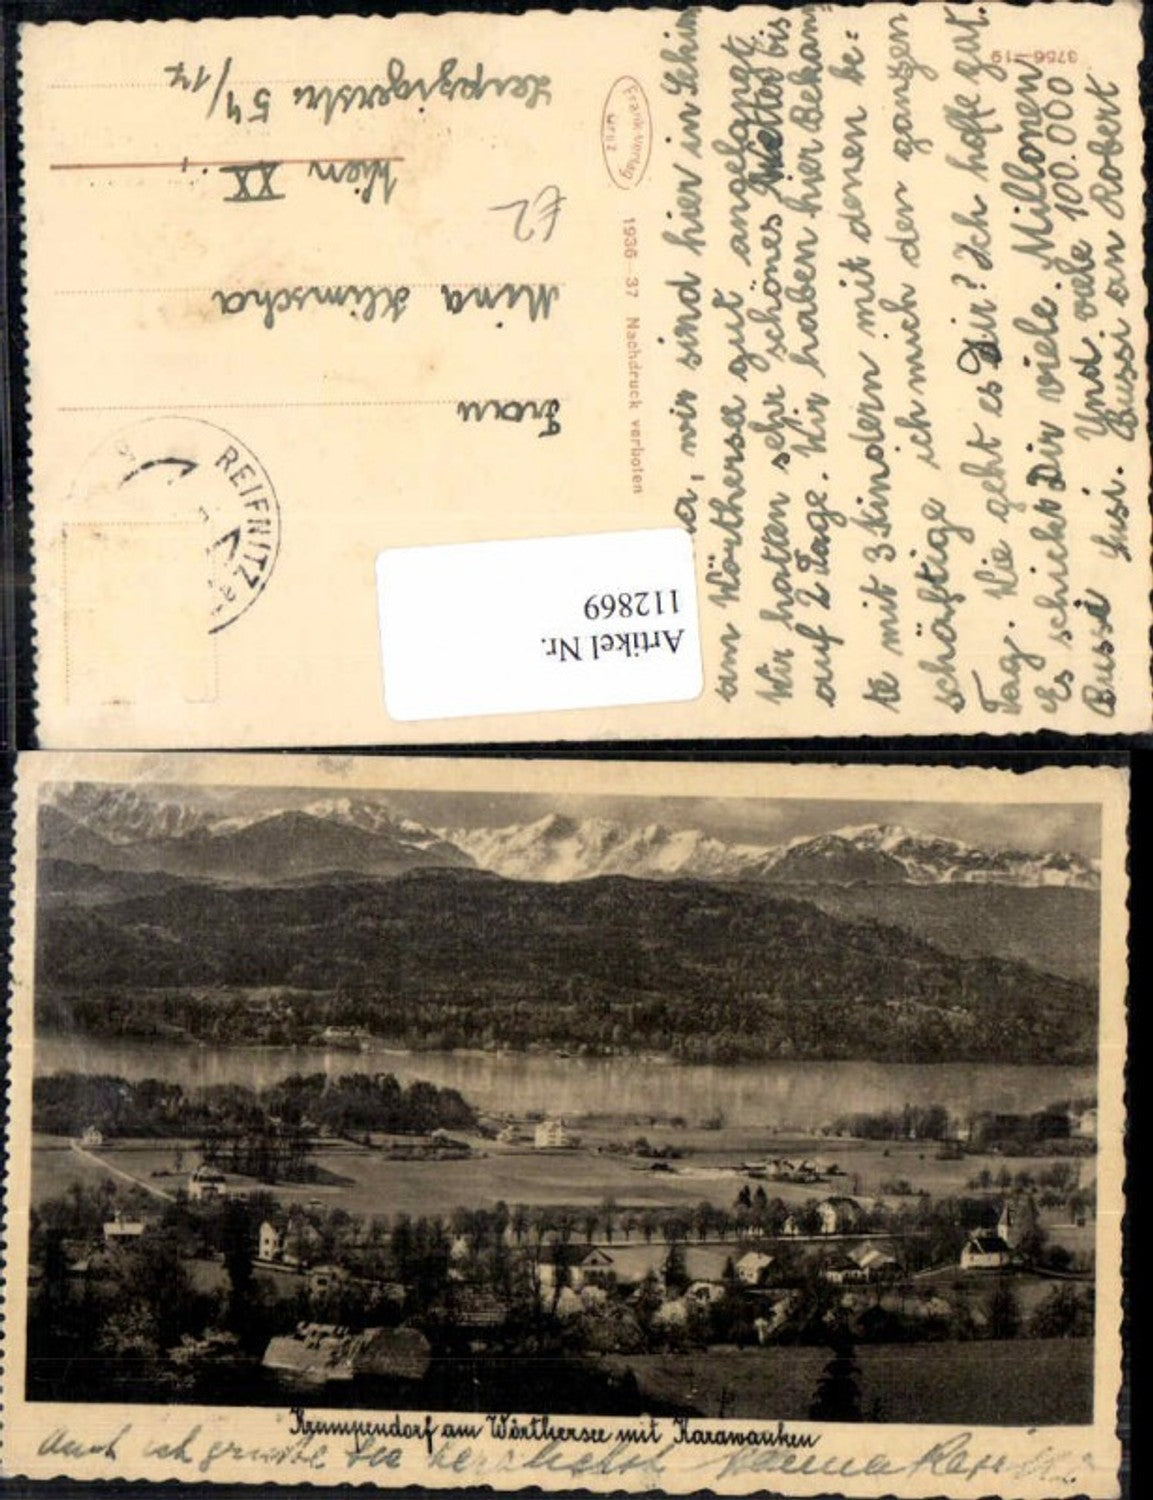 3756-19
Frank-Verlag
Graz
1936-37 Nachdruck verboten
wir sind hier in Schim
am Wörthersee gut angelangt
Wir hatten sehr schönes Wetter bis
auf 2 Tage. Wir haben hier Bekann
te mit 3 Kindern mit denen be=
schäftige ich mich den ganzen
Tag. Wie geht es Dir? Ich hoffe gut.
Es schickt Dir viele Millonen
Bussi Und viele 100.000
Susi. Bussi an Robert
Frau
Mina Klimscha
Wien XX.,
Leipzigerstr. 54/14
£2
REIFNITZ
Artikel Nr.
112869
Krumpendorf am Wörthersee mit Karawanken
Auch ich grüße Sie herzlichst